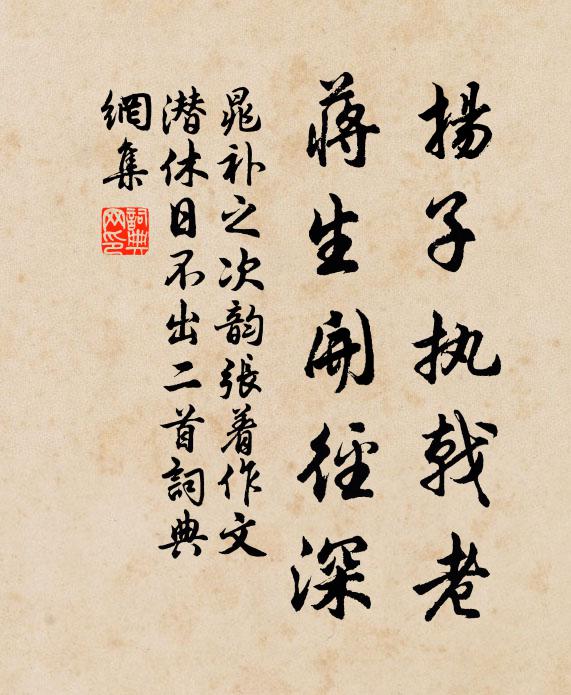 揚子执戟老
蒋生開徑深
晁补之次韵張着作文
潜休日不出二首詞典
網集
詞典
网印